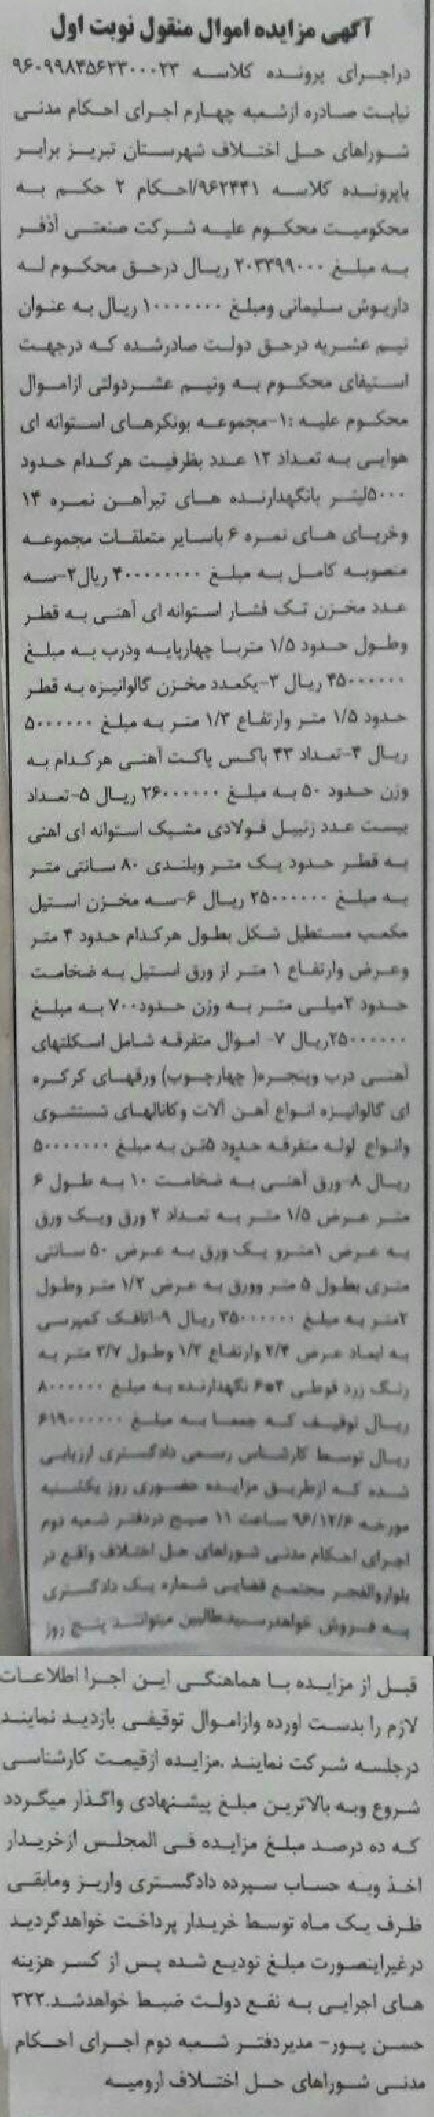 آگهی مزایده اموال منقول نوبت اول
دراجرای پرونده کلاسه ۹۶۰۹۹۸۴۵۶۲۳۰۰۰۲۳
نیابت صادره ازشعبه چهارم اجرای احکام مدنی
شوراهای حل اختلاف شهرستان تبریز برابر
باپرونده کلاسه ۹۶۲۴۴۱/احکام ۲ حکم به
محکومیت محکوم علیه شرکت صنعتی آذفر
به مبلغ ۲۰۳۳۹۹۰۰۰ ریال درحق محکوم له
داریوش سلیمانی ومبلغ ۱۰۰۰۰۰۰۰ ریال به عنوان
نیم عشریه درحق دولت صادرشده که درجهت
استیفای محکوم به ونیم عشردولتی ازاموال
محکوم علیه :۱-مجموعه بونکرهای استوانه ای
هوایی به تعداد ۱۳ عدد بظرفیت هرکدام حدود
۵۰۰۰لیتر بانگهدارنده های تیرآهن نمره ۱۴
وخرپای های نمره ۶ باسایر متعلقات مجموعه
منصوبه کامل به مبلغ ۴۰۰۰۰۰۰۰۰ ریال۲-سه
عدد مخزن تک فشار استوانه ای آهنی به قطر
وطول حدود ۱/۵ متربا چهارپایه ودرب به مبلغ
۴۵۰۰۰۰۰۰ ریال ۳-یکعدد مخزن گالوانیزه به قطر
حدود ۱/۵ متر وارتفاع ۱/۳ متر به مبلغ ۵۰۰۰۰۰۰
ریال ۴-تعداد ۴۳ باکس پاکت آهنی هرکدام به
وزن حدود ۵۰ به مبلغ ۲۶۰۰۰۰۰۰ ریال ۵-تعداد
بیست عدد زنبیل فولادی مشبک استوانه ای اهنی
به قطر حدود یک متر وبلندی ۸۰ سانتی متر
به مبلغ ۲۵۰۰۰۰۰۰ ریال ۶-سه مخزن استیل
مکعب مستطیل شکل بطول هرکدام حدود ۴ متر
وعرض وارتفاع ۱ متر از ورق استیل به ضخامت
حدود ۲میلی متر به وزن حدود۷۰۰ به مبلغ
۲۵۰۰۰۰۰۰ریال ۷- اموال متفرقه شامل اسکلتهای
آهنی درب وپنجره( چهارچوب) ورقهای کرکره
ای گالوانیزه انواع آهن آلات وکانالهای تستشوی
وانواع لوله متفرقه حدود ۵تن به مبلغ ۵۰۰۰۰۰۰۰
ریال ۸-ورق آهنی به ضخامت ۱۰ به طول ۶
متر عرض ۱/۵ متر به تعداد ۲ ورق ویک ورق
به عرض ۱مترو یک ورق به عرض ۵۰ سانتی
متری بطول ۵ متر وورق به عرض ۱/۲ متر وطول
۲متر به مبلغ ۳۵۰۰۰۰۰۰ ریال ۹-اتاقک کمپرسی
به ابعاد عرض ۲/۴ وارتفاع ۱/۲ وطول ۳/۷ متر به
رنگ زرد قوطی ۴*۶ نگهدارنده به مبلغ ۸۰۰۰۰۰۰
ریال توقیف که جمعا به مبلغ ۶۱۹۰۰۰۰۰۰
ریال توسط کارشناس رسمی دادگستری ارزیابی
شده که ازطریق مزایده حضوری روز یکشنبه
مورخه ۹۶/۱۲/۶ ساعت ۱۱ صبح دردفتر شعبه دوم
اجرای احکام مدنی شوراهای حل اختلاف واقع در
بلواروالفجر مجتمع قضایی شماره یک دادگستری
به فروش خواهدرسیدطالبین میتوانند پنج روز
قبل از مزایده با هماهنگی این اجرا اطلاعات
لازم را بدست اورده وازاموال توقیفی بازدید نمایند
درجلسه شرکت نمایند .مزایده ازقیمت کارشناسی
شروع وبه بالاترین مبلغ پیشنهادی واگذار میگردد
که ده درصد مبلغ مزایده فی المجلس ازخریدار
اخذ وبه حساب سپرده دادگستری واریز ومابقی
ظرف یک ماه توسط خریدار پرداخت خواهدگردید
درغیراینصورت مبلغ تودیع شده پس از کسر هزینه
های اجرایی به نفع دولت ضبط خواهدشد.۳۳۲
حسن پور- مدیردفتر شعبه دوم اجرای احکام
مدنی شوراهای حل اختلاف ارومیه